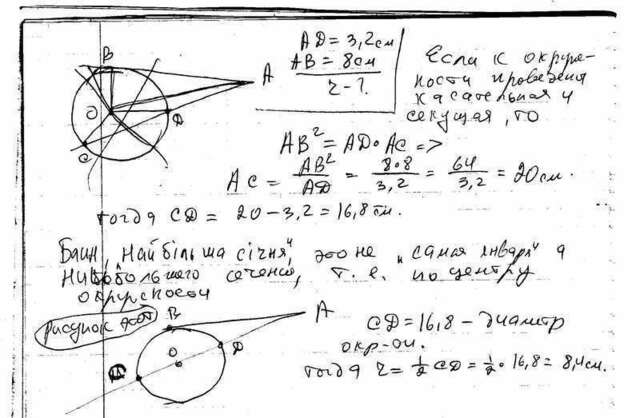 AD = 3,2 см
AB = 8 см
r - ?
Если к окруж-
ности проведена
касательная и
секущая, то
B
A
O
D
C
AB² = AD • AC =>
AC = AB²/AD = 8•8/3,2 = 64/3,2 = 20 см.
тогда CD = 20 - 3,2 = 16,8 см.
"Найбільша січна", это не "самая января" а
сечение, т. е. по центру
окружности
Рисунок
B
A
O
D
CD = 16,8 - диаметр
окр-ти.
тогда r = ½ CD = ½ • 16,8 = 8,4 см.